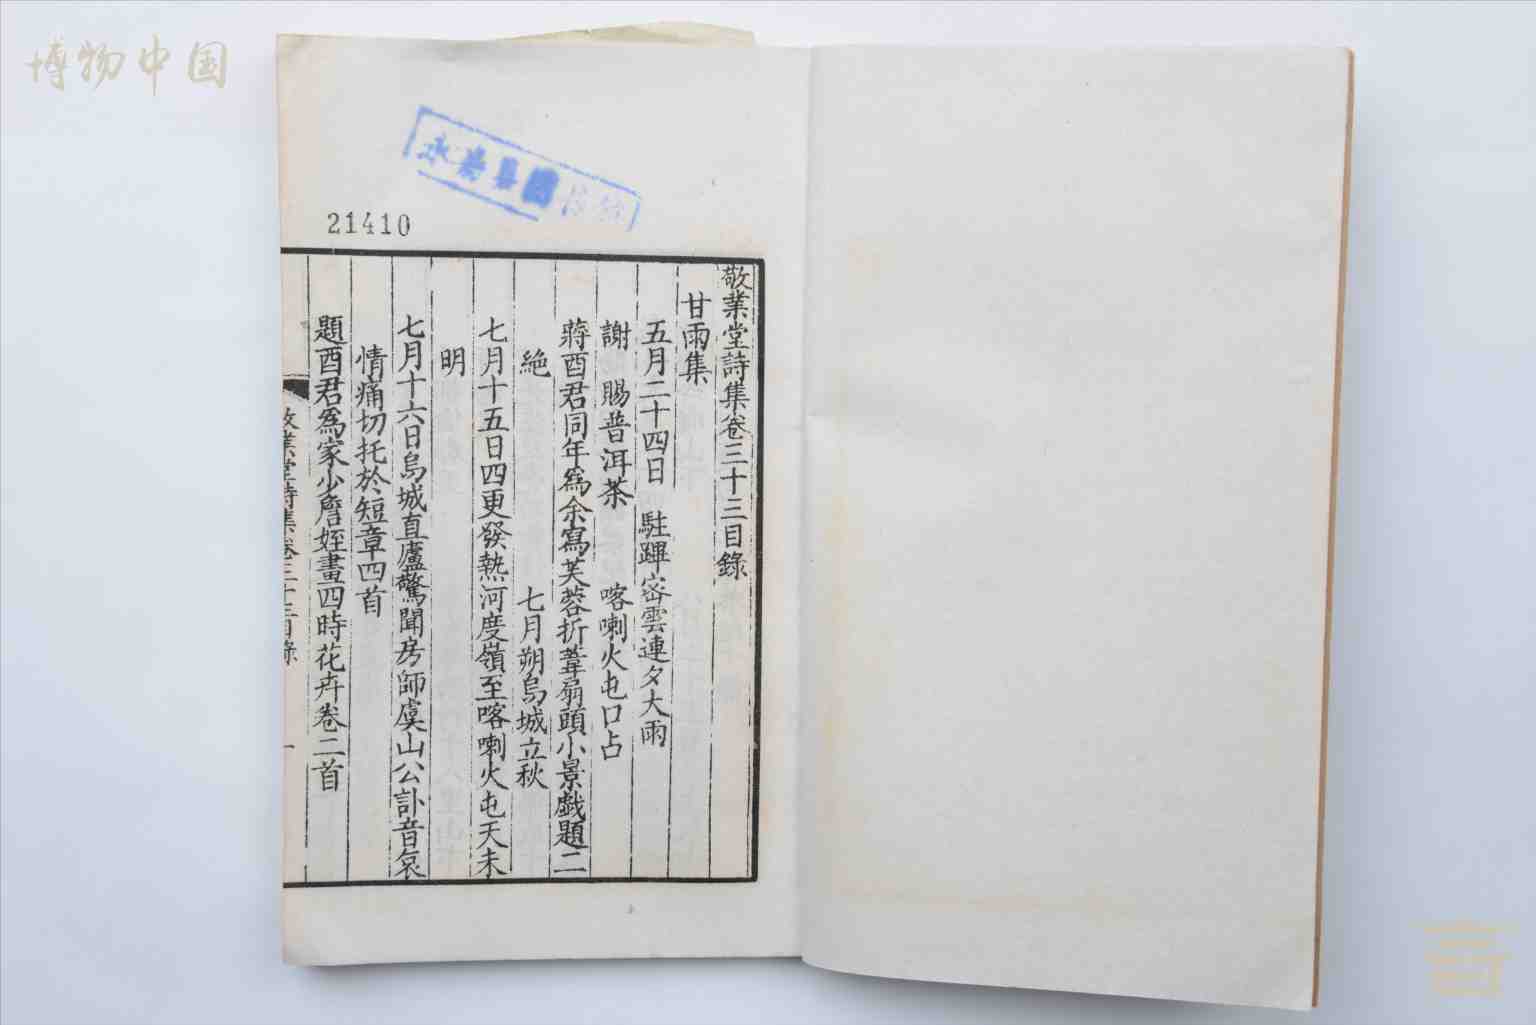 博物中国
永壽縣圖
21410
敬業堂詩集卷三十三目錄
甘雨集
五月二十四日 駐蹕密雲連夕大雨
謝 賜普洱茶 喀喇火屯口占
蔣酉君同年為余寫芙蓉折葦扇頭小景戯題二
絶 七月朔烏城立秋
七月十五日四更發熱河度嶺至喀喇火屯天未
明
七月十六日烏城直廬驚聞房師虞山公訃音哀
情痛切托於短章四首
題酉君為家少詹姪畫四時花卉卷二首
敬業堂詩集卷三十三目錄 一